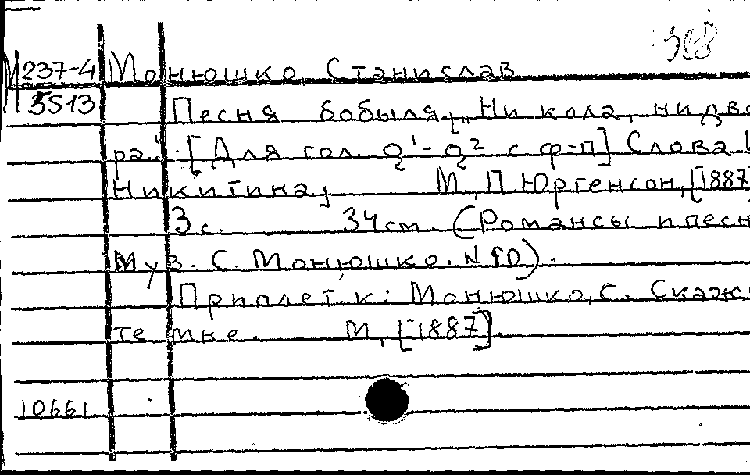 308
М 237-4 Монюшко, Станислав
3513 Песня бобыля "Ни кола, ни дво
ра". [Для гол. d¹-g² с ф-п] Слова
Никитина, М., П. Юргенсон, [1887
3 с. 34 см. (Романсы и песн
муз. С. Монюшко. №10).
Приплет. к: Монюшко, С. Скажи
те мне. М., [1887].
10661